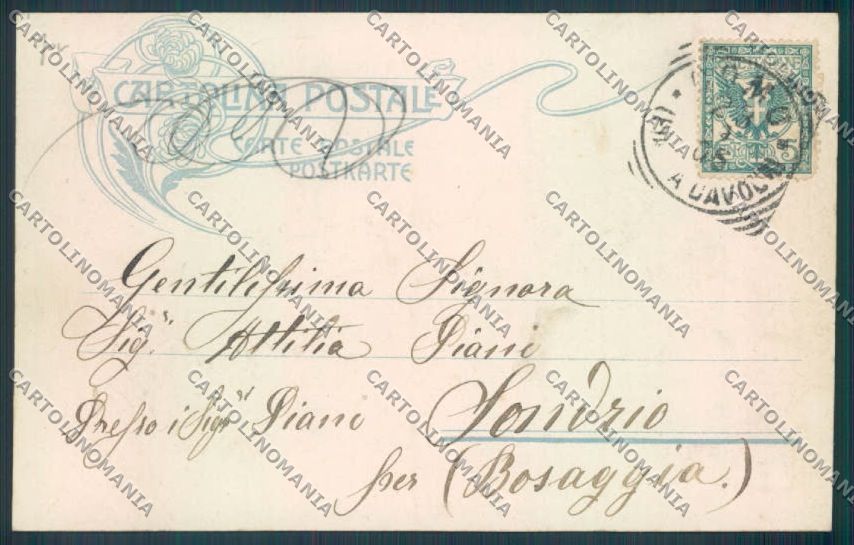 CARTOLINA POSTALE
CARTE POSTALE
POSTKARTE
A CAVOUR
Gentilissima Signora
Sig.ra Attilia Piani
Presso i Sigri Piani Sondrio
per (Bosaggia.)
CARTOLINOMANIA